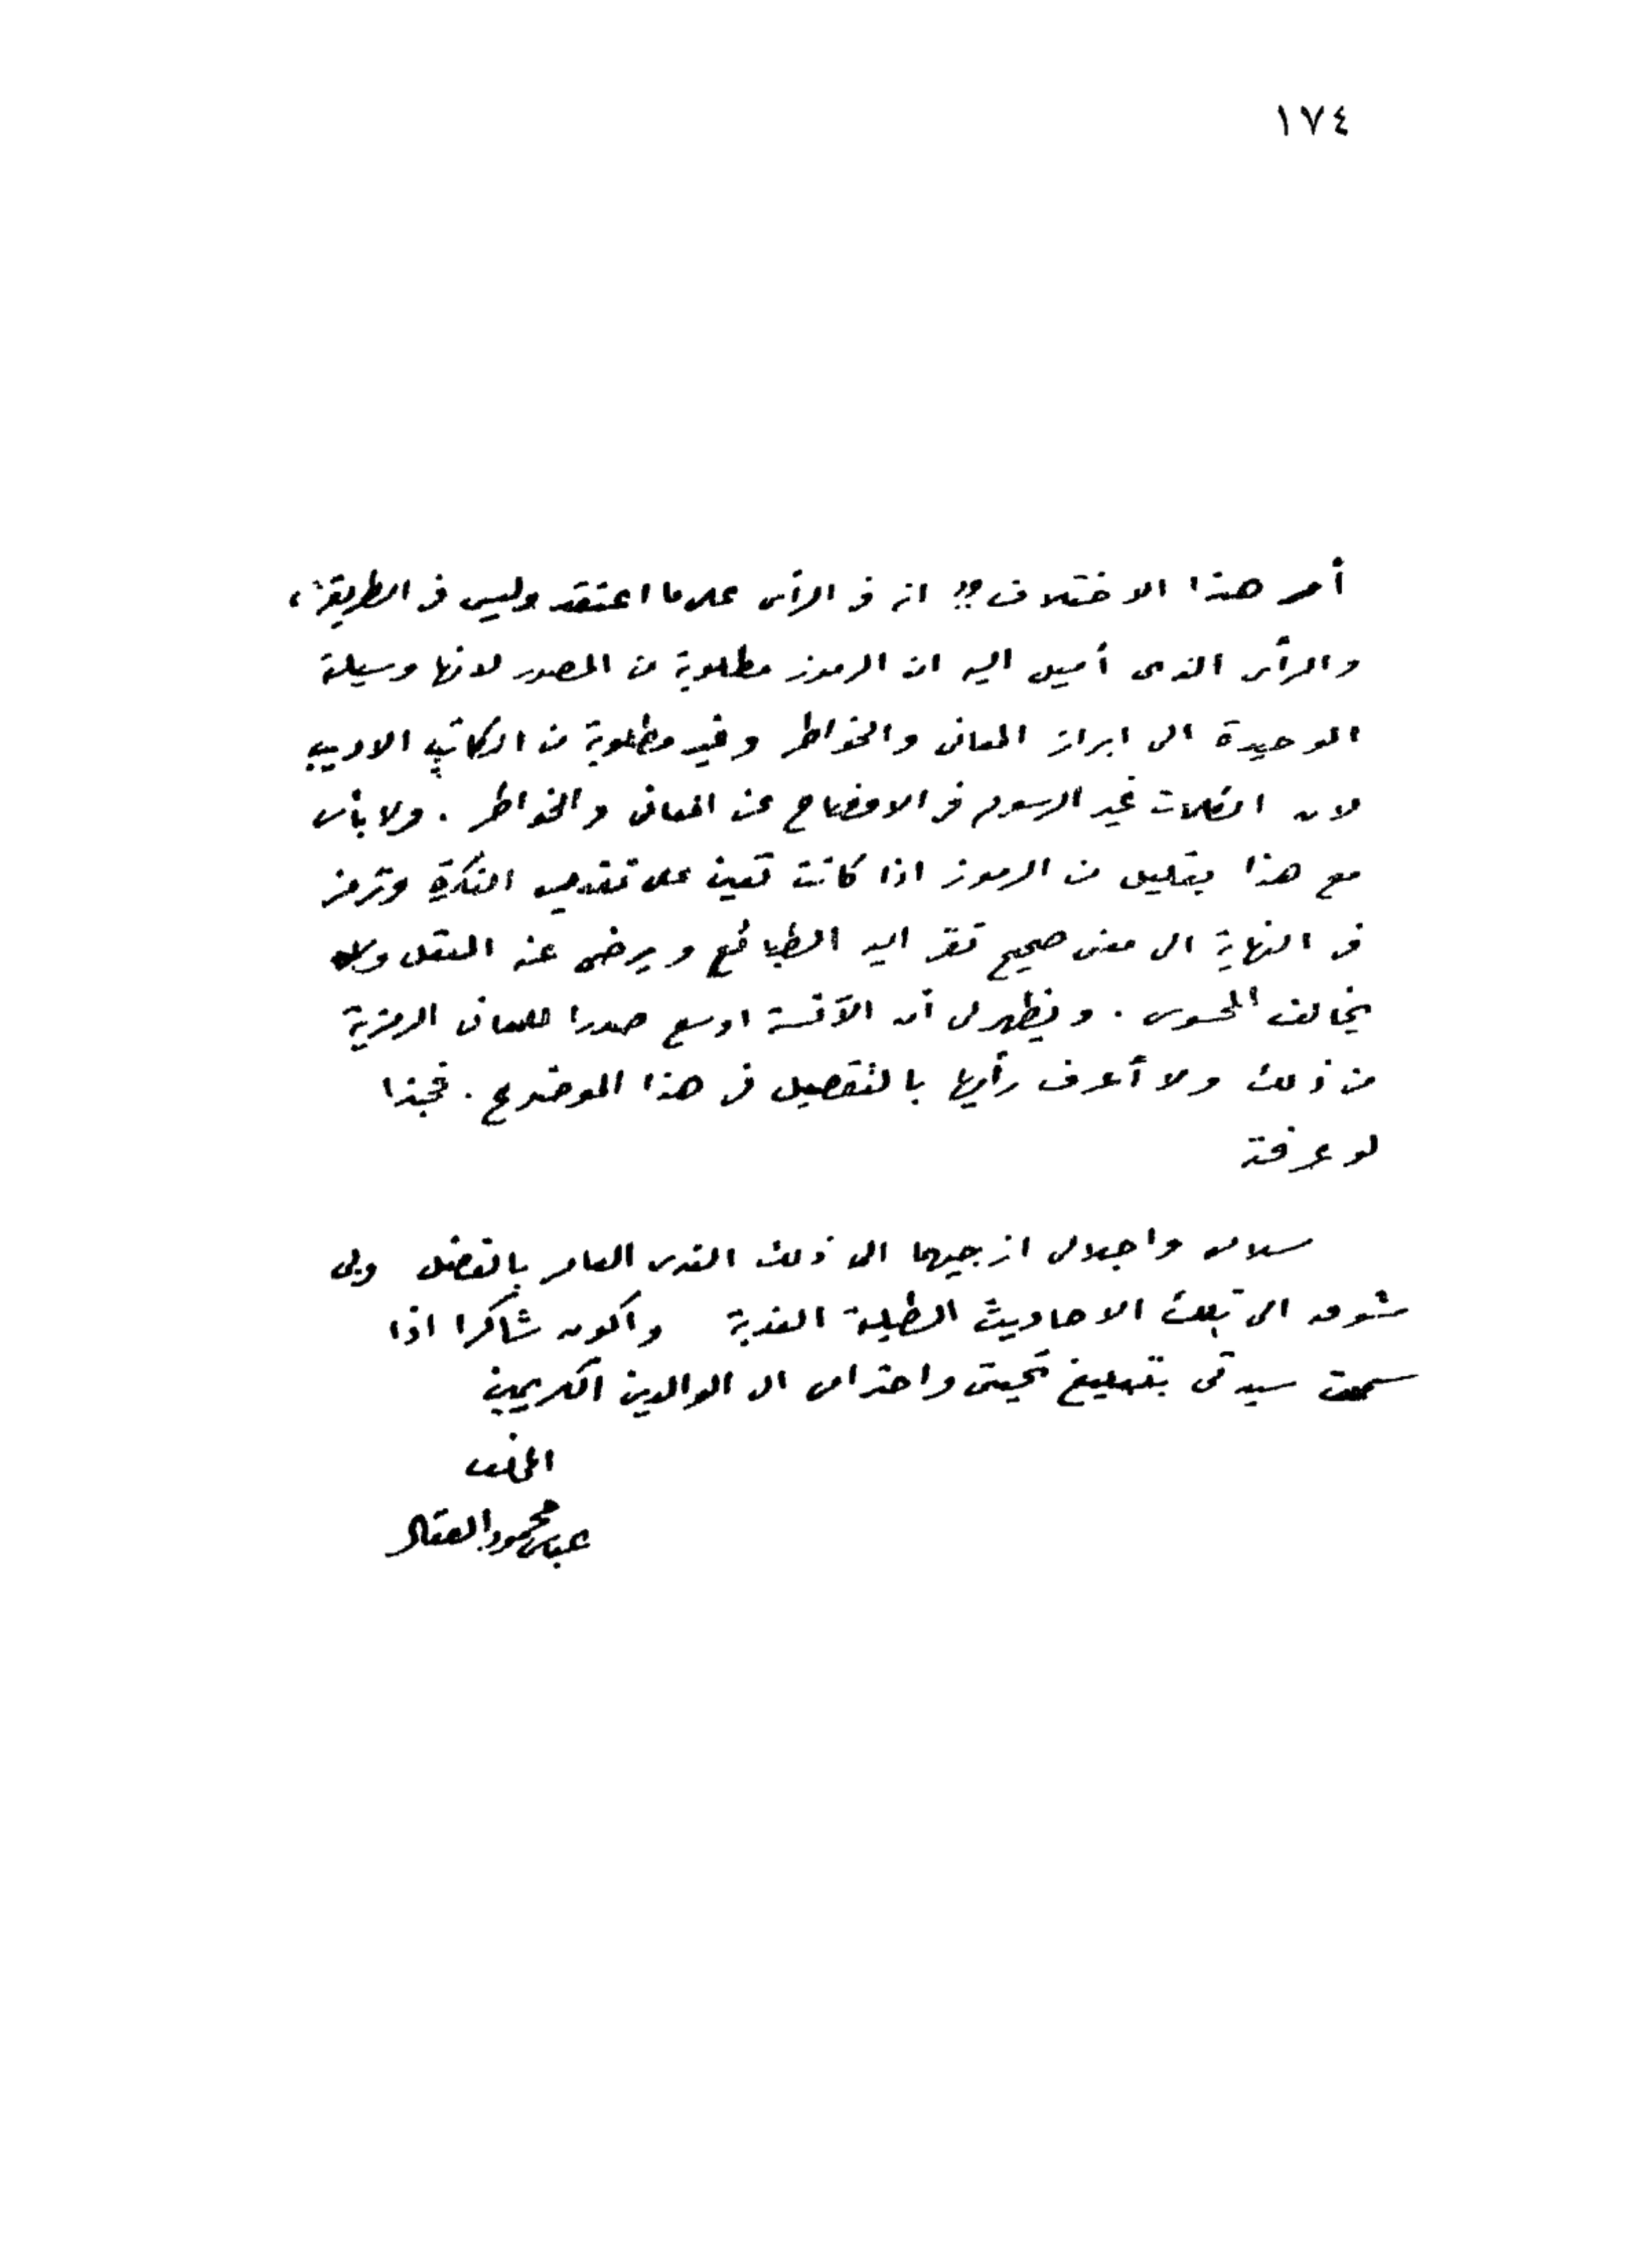 ١٧٤
أمر هذا الاختلاف؟! انه فى الرأى على ما اعتقد وليس فى الطريقة،
والرأى الذى أميل اليه ان الرموز مطلوبة من المصور لانها وسيلته
الوحيدة الى ابراز المعانى والخواطر وغير مطلوبة من الكاتب الاديب
لان الكلمات غير الرسوم فى الافصاح عن المعانى والخواطر . ولا بأس
مع هذا بقليل من الرموز اذا كانت تعين على تقديم الفكرة وترمز
فى النهاية الى معنى صحيح تقر اليه الطبائع ويرضى عنه العقل ولا
يخالف المحسوس . ويظهر لى أن الآنسة اوسع صدرا للمعانى الرمزية
من ذلك ولا أعرف رأيها بالتفصيل فى هذا الموضوع . فحبذا
لو عرفته
سلامى واجلالى ازجيهما الى ذلك الندى العامر بالفضل وبى
شوق الى تلك الاحاديث الطلية العذبة واكون شاكرا اذا
سمحت سيدتى بتبليغ تحيتى واحترامى الى الوالدين الكريمين
المخلص
عباس محمود العقاد